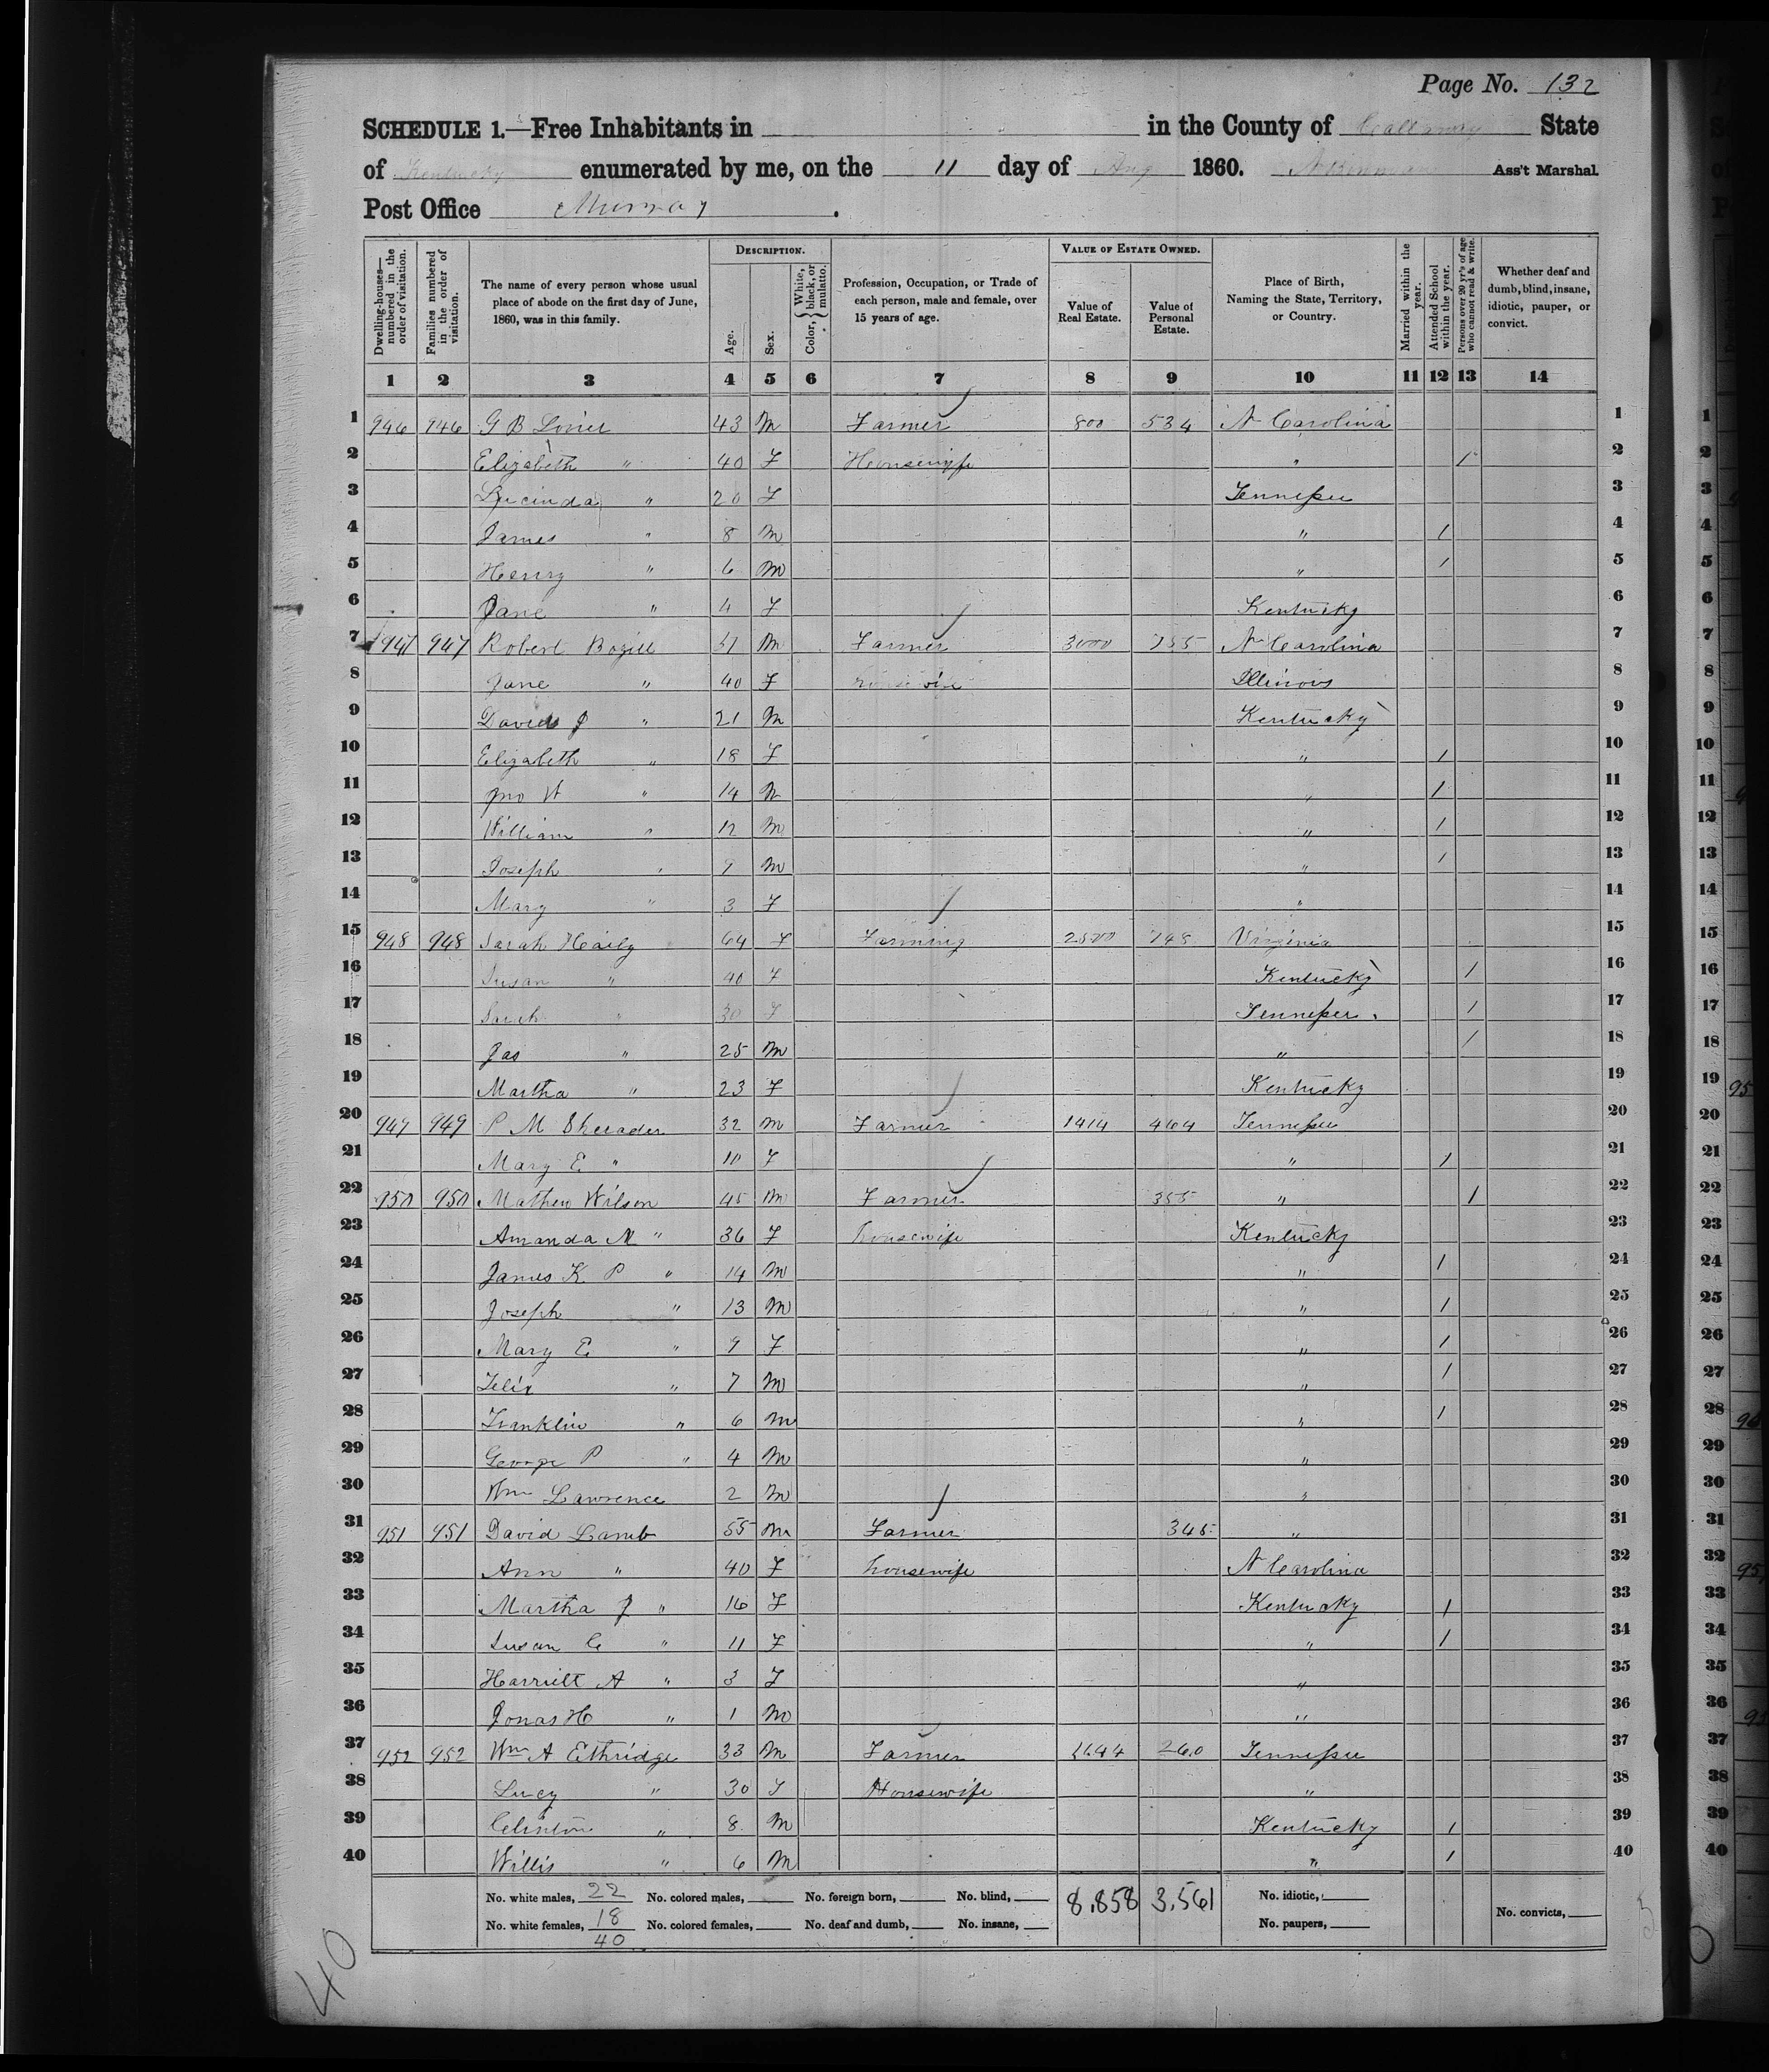 Page No. 132
SCHEDULE 1.—Free Inhabitants in in the County of Calloway State
of Kentucky enumerated by me, on the 11 day of Aug 1860. Ass't Marshal.
Post Office Murray.
Dwelling-houses—numbered in the order of visitation. Families numbered in the order of visitation. The name of every person whose usual place of abode on the first day of June, 1860, was in this family. DESCRIPTION. Age. Sex. Color, { White, black, or mulatto. Profession, Occupation, or Trade of each person, male and female, over 15 years of age. VALUE OF ESTATE OWNED. Value of Real Estate. Value of Personal Estate. Place of Birth, Naming the State, Territory, or Country. Married within the year. Attended School within the year. Persons over 20 yr's of age who cannot read & write. Whether deaf and dumb, blind, insane, idiotic, pauper, or convict.
1 2 3 4 5 6 7 8 9 10 11 12 13 14
1 946 946 G B 43 M Farmer 800 534 N Carolina 1
2 Elizabeth " 40 F Housewife " / 2
3 Lucinda " 20 F Tennessee 3
4 James " 8 M " / 4
5 Henry " 6 M " / 5
6 Jane " 4 F Kentucky 6
7 947 947 Robert M Farmer 3000 755 N Carolina 7
8 Jane " 40 F housewife Illinois 8
9 David J " 21 M Kentucky 9
10 Elizabeth " 18 F " / 10
11 Jno " 14 M " / 11
12 William " 12 M " / 12
13 Joseph " 9 M " / 13
14 Mary " 3 F " 14
15 948 948 Sarah Haily 64 F Farming 2500 748 Virginia 15
16 Susan " 40 F Kentucky / 16
17 Sarah " 30 F Tennessee / 17
18 Jas " 25 M " / 18
19 Martha " 23 F Kentucky 19
20 949 949 P M 32 M Farmer 1414 464 Tennessee 20
21 Mary E " 10 F " / 21
22 950 950 Mathew Wilson 45 M Farmer 355 " / 22
23 Amanda M " 36 F housewife Kentucky 23
24 James K P " 14 M " / 24
25 Joseph " 13 M " / 25
26 Mary E " 9 F " / 26
27 Felix " 7 M " / 27
28 Franklin " 6 M " / 28
29 George P " 4 M " 29
30 Wm Lawrence 2 M " 30
31 951 951 David Lamb 55 M Farmer 345 " 31
32 Ann " 40 F housewife N Carolina 32
33 Martha J " 16 F Kentucky / 33
34 Susan C " 11 F " / 34
35 Harriett A " 3 F " 35
36 Jonas H " 1 M " 36
37 952 952 Wm A Ethridge 33 M Farmer 260 Tennessee 37
38 Lucy " 30 F Housewife " 38
39 Clinton " 8 M Kentucky / 39
40 Willis " 6 M " / 40
No. white males, 22 No. colored males, No. foreign born, No. blind, 8,858 3,561 No. idiotic,
No. white females, 18 No. colored females, No. deaf and dumb, No. insane, No. paupers, No. convicts,
40
40